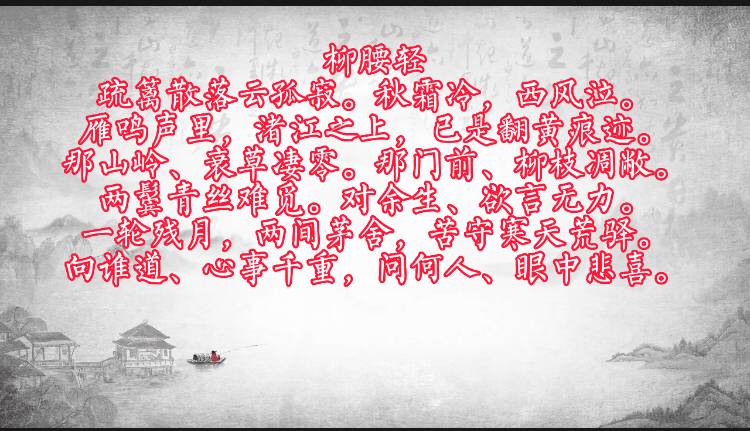 柳腰轻
疏篱散落云孤寂。秋霜冷，西风泣。
雁鸣声里，渚江之上，已是翻黄痕迹。
那山岭、衰草凄零。那门前、柳枝凋敝。
两鬓青丝难觅。对余生、欲言无力。
一轮残月，两间茅舍，苦守寒天荒驿。
向谁道、心事千重，问何人、眼中悲喜。